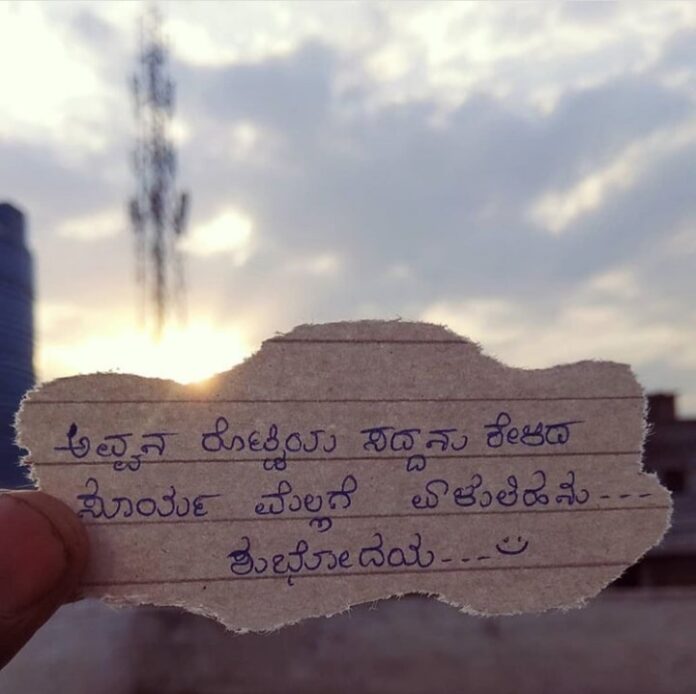 ಅವ್ವನ ರೊಟ್ಟಿಯ ಸದ್ದನು ಕೇಳಿದ
ಸೂರ್ಯ ಮೆಲ್ಲಗೆ ಏಳುತಿಹನು---
ಶುಭೋದಯ---